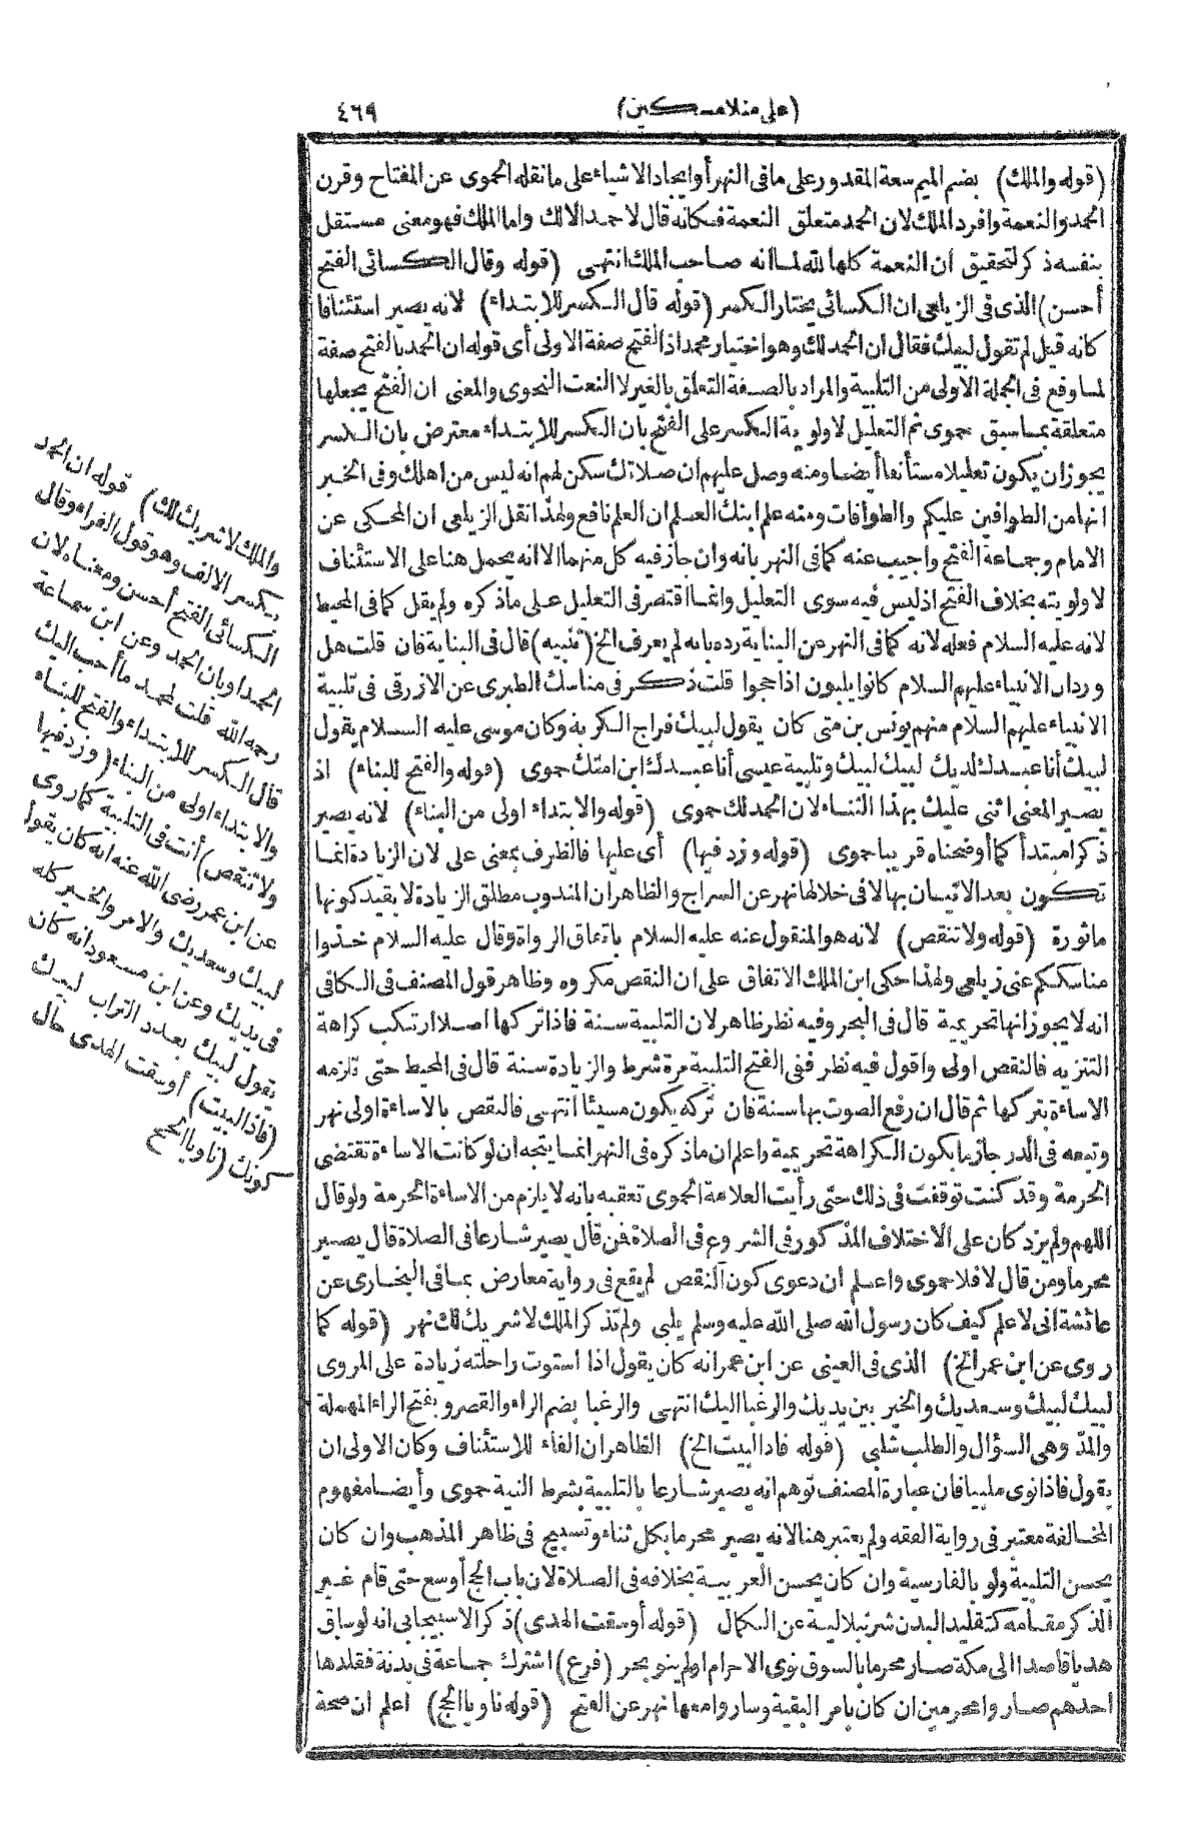 (على منلا مسكين) ٤٦٩
(قوله والملك) بضم الميم سعة المقدور على ما فى النهر أو ايجاد الاشياء على ما نقله الحموى عن المفتاح وقرن
الحمد والنعمة وافرد الملك لان الحمد متعلق النعمة فكأنه قال لا حمد الا لك واما الملك فهو معنى مستقل
بنفسه ذكر لتحقيق ان النعمة كلها لله لما انه صاحب الملك انتهى (قوله وقال الكسائى الفتح
أحسن) الذى فى الزيلعى ان الكسائى يختار الكسر (قوله قال الكسر للابتداء) لانه يصير استئنافا
كانه قيل لم تقول لبيك فقال ان الحمد لك وهو اختيار محمد اذ الفتح صفة الاولى أى قوله ان الحمد بالفتح صفة
لما وقع فى الجملة الاولى من التلبية والمراد بالصفة التعلق بالغير لا النعت النحوى والمعنى ان الفتح يجعلها
متعلقة بما سبق حموى ثم التعليل لاولوية الكسر على الفتح بان الكسر للابتداء معترض بان الكسر
يجوز ان يكون تعليلا مستأنفا أيضا ومنه وصل عليهم ان صلاتك سكن لهم انه ليس من اهلك وفى الخبر
انها من الطوافين عليكم والطوافات ومنه علم ابنك العلم ان العلم نافع ولهذا نقل الزيلعى ان المحكى عن
الامام وجماعة الفتح واجيب عنه كما فى النهر بانه وان جاز فيه كل منهما الا انه يحمل هنا على الاستئناف
لاولويته بخلاف الفتح اذ ليس فيه سوى التعليل وانما اقتصر فى التعليل على ما ذكره ولم يقل كما فى المحيط
لانه عليه السلام فعله لانه كما فى النهر عن البناية رده بانه لم يعرف الخ (تنبيه) قال فى البناية فان قلت هل
ورد ان الانبياء عليهم السلام كانوا يلبون اذا حجوا قلت ذكر فى مناسك الطبرى عن الازرقى فى تلبية
الانبياء عليهم السلام منهم يونس بن متى كان يقول لبيك فراج الكربة وكان موسى عليه السلام يقول
لبيك أنا عبدك لديك لبيك لبيك وتلبية عيسى أنا عبدك ابن امتك حموى (قوله والفتح للبناء) اذ
يصير المعنى اثنى عليك بهذا الثناء لان الحمد لك حموى (قوله والابتداء اولى من البناء) لانه يصير
ذكرا مبتدأ كما أوضحناه قريبا حموى (قوله وزد فيها) أى عليها فالظرف بمعنى على لان الزيادة انما
تكون بعد الاتيان بها لا فى خلالها نهر عن السراج والظاهر ان المندوب مطلق الزيادة لا بقيد كونها
ماثورة (قوله ولا تنقص) لانه هو المنقول عنه عليه السلام باتفاق الرواة وقال عليه السلام خذوا
مناسككم عنى زيلعى ولهذا حكى ابن الملك الاتفاق على ان النقص مكروه وظاهر قول المصنف فى الكافى
انه لا يجوز انها تحريمية قال فى البحر وفيه نظر ظاهر لان التلبية سنة فاذا تركها اصلا ارتكب كراهة
التنزيه فالنقص اولى واقول فيه نظر ففى الفتح التلبية مرة شرط والزيادة سنة قال فى المحيط حتى تلزمه
الاساءة بتركها ثم قال ان رفع الصوت بها سنة فان تركه يكون مسيئا انتهى فالنقص بالاساءة اولى نهر
وتبعه فى الدر جازما بكون الكراهة تحريمية واعلم ان ما ذكره فى النهر انما يتجه ان لو كانت الاساءة تقتضى
الحرمة وقد كنت توقفت فى ذلك حتى رأيت العلامة الحموى تعقبه بانه لا يلزم من الاساءة الحرمة ولو قال
اللهم ولم يزد كان على الاختلاف المذكور فى الشروع فى الصلاة فمن قال يصير شارعا فى الصلاة قال يصير
محرما ومن قال لا فلا حموى واعلم ان دعوى كون النقص لم يقع فى رواية معارض بما فى البخارى عن
عائشة انى لاعلم كيف كان رسول الله صلى الله عليه وسلم يلبى ولم تذكر الملك لا شريك لك نهر (قوله كما
روى عن ابن عمر الخ) الذى فى العينى عن ابن عمر انه كان يقول اذا استوت راحلته زيادة على المروى
لبيك لبيك وسعديك والخير بين يديك والرغبا اليك انتهى والرغبا بضم الراء والقصر وبفتح الراء المهملة
والمد وهى السؤال والطلب شلبى (قوله فاذا لبيت الخ) الظاهر ان الفاء للاستئناف وكان الاولى ان
يقول فاذا نوى ملبيا فان عبارة المصنف توهم انه يصير شارعا بالتلبية بشرط النية حموى وأيضا مفهوم
المخالفة معتبر فى رواية الفقه ولم يعتبر هنا لانه يصير محرما بكل ثناء وتسبيح فى ظاهر المذهب وان كان
يحسن التلبية ولو بالفارسية وان كان يحسن العربية بخلافه فى الصلاة لان باب الحج أوسع حتى قام غير
الذكر مقامه كتقليد البدن شرنبلالية عن الكمال (قوله أوسقت الهدى) ذكر الاسبيجابى انه لو ساق
هديا قاصدا الى مكة صار محرما بالسوق نوى الاحرام او لم ينو بحر (فرع) اشترك جماعة فى بدنة فقلدها
احدهم صاروا محرمين ان كان بامر البقية وساروا معها نهر عن الفتح (قوله ناويا الحج) اعلم ان صحة
والملك لا شريك لك) قوله ان الحمد
بكسر الالف وهو قول الفراء وقال
الكسائى الفتح أحسن ومعناه لان
الحمد او بان الحمد وعن ابن سماعة
رحمه الله قلت لمحمد ما أحب اليك
قال الكسر للابتداء والفتح للبناء
والابتداء اولى من البناء (وزد فيها
ولا تنقص) أنت فى التلبية كما روى
عن ابن عمر رضى الله عنه انه كان يقول
لبيك وسعديك والامر والخير كله
فى يديك وعن ابن مسعود انه كان
يقول لبيك بعدد التراب لبيك
(فاذا لبيت) أوسقت الهدى حال
كونك (ناويا الحج